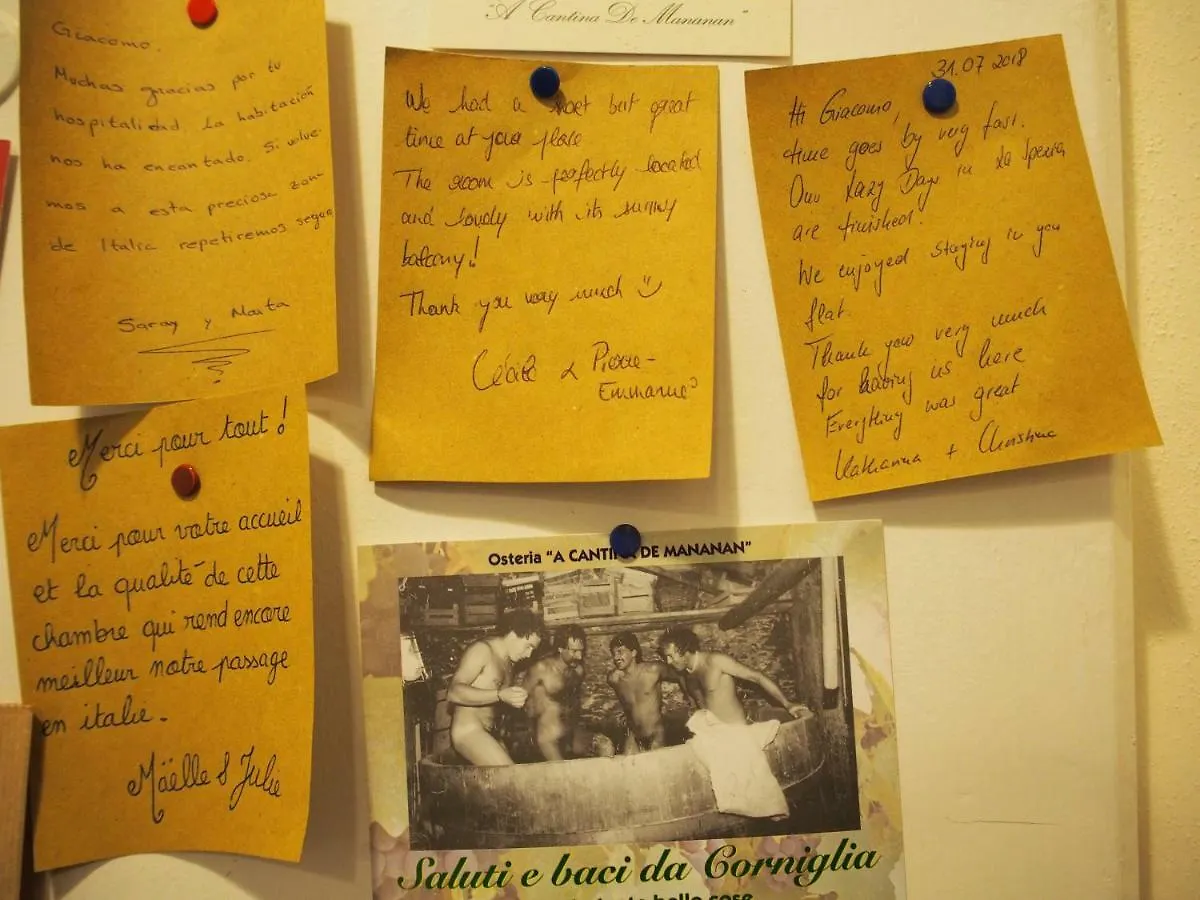 "A Cantina De Mananan"
Giacomo.
Muchas gracias por tu
hospitalidad. La habitación
nos ha encantado. Si volve-
mos a esta preciosa zona
de Italia repetiremos seguro
Saray y Marta
We had a short but great
time at your place
The room is perfectly located
and lovely with its sunny
balcony!
Thank you very much
Cécile & Pierre-
Emmanuel
31.07 2018
Hi Giacomo,
time goes by very fast.
Our Lazy Days in La Spezia
are finished!
We enjoyed staying in you
flat.
Thank you very much
for having us here
Everything was great
Katharina + Christina
Merci pour tout!
Merci pour votre accueil
et la qualité de cette
chambre qui rend encore
meilleur notre passage
en italie.
Mäelle & Julie
Osteria "A CANTINA DE MANANAN"
Saluti e baci da Corniglia
belle cose